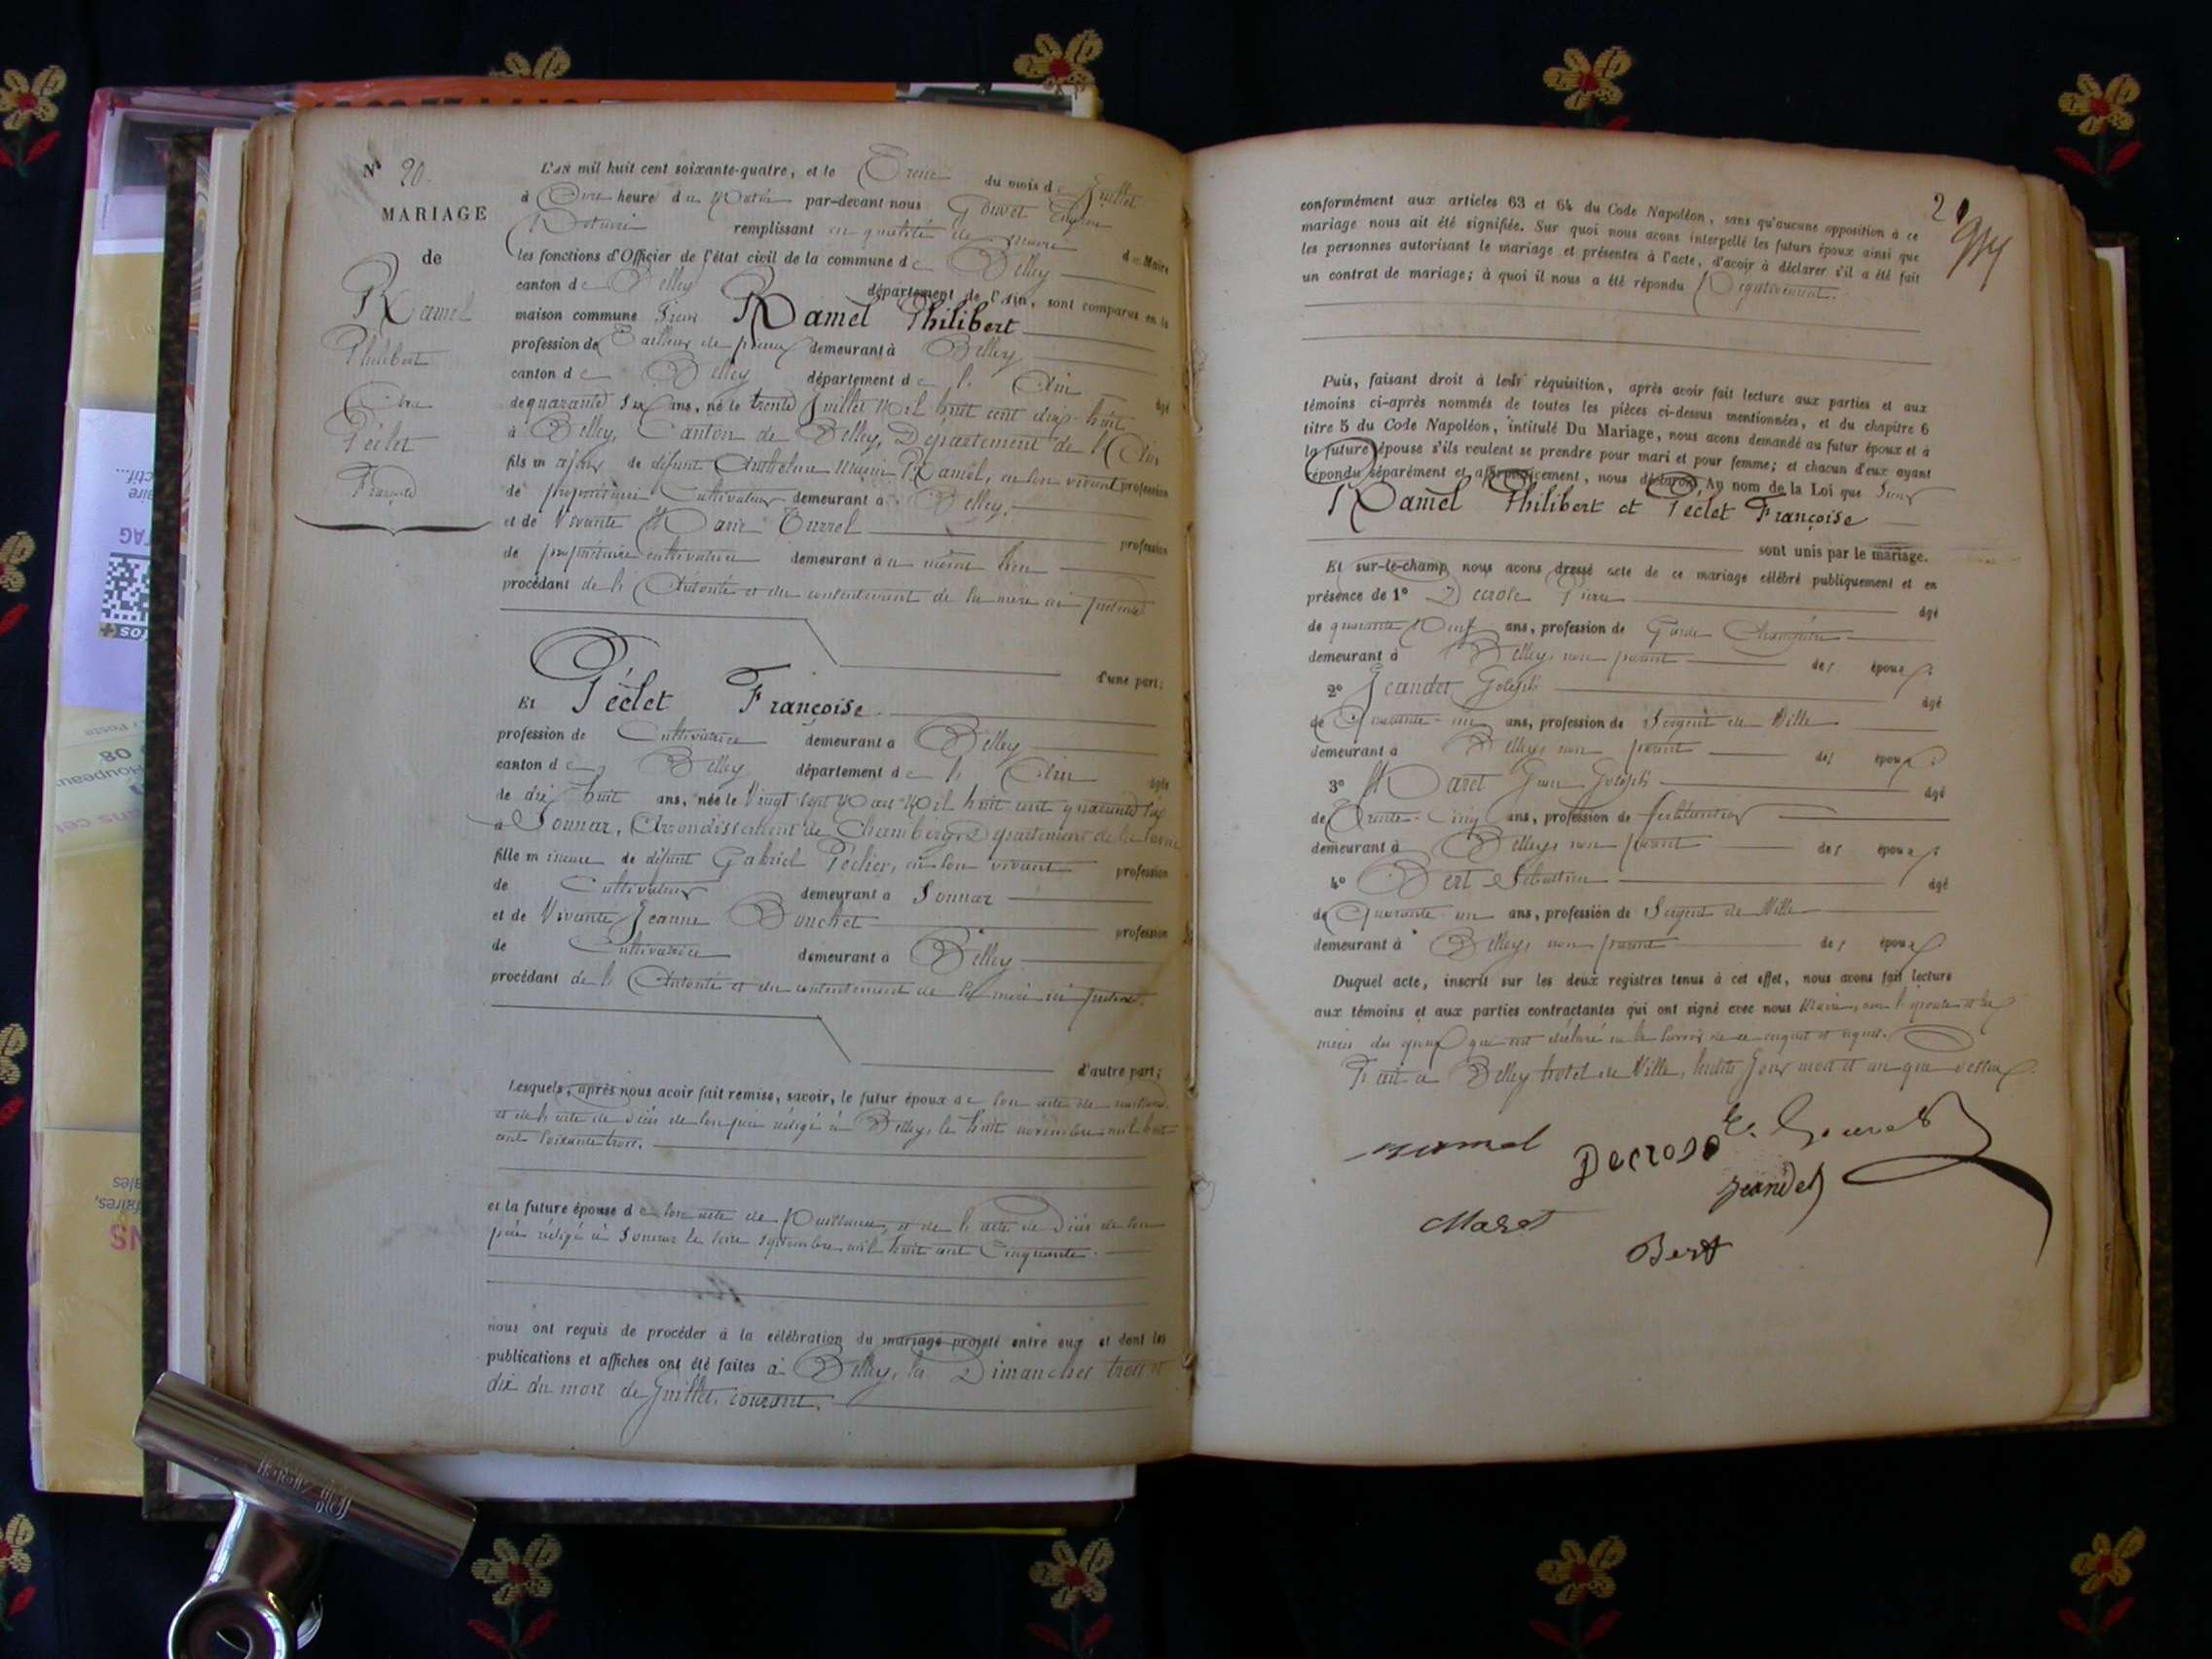 N° 20.
MARIAGE
de
Ramel
Philibert
Péclet
L'an mil huit cent soixante-quatre, et le Treize du mois de Juillet
à Onze heure du Matin par-devant nous Gouvet
Notaire remplissant en qualité de maire
les fonctions d'Officier de l'état civil de la commune de Belley
canton de Belley département de l'Ain, sont comparus en la
maison commune Sieur Ramel Philibert
profession de Tailleur de pierres demeurant à Belley
canton de Belley département de l' Ain âgé
de quarante six ans, né le trente Juillet Mil huit cent dix-huit
à Belley, Canton de Belley, Département de l'Ain
fils majeur de défunt Anthelme Ramel, en son vivant profession
de propriétaire Cultivateur demeurant à Belley.
et de Vivante Marie profession
de propriétaire cultivatrice demeurant à même lieu
procédant de l'Autorité et du consentement de la mère ici présente
d'une part;
Et Péclet Françoise
profession de Cultivatrice demeurant à Belley
canton de Belley département de l' Ain âgée
de dix huit ans, née le Vingt sept Mars Mil huit cent quarante six
à Sonnaz, Arrondissement de Chambéry, Département de la Savoie
fille mineure de défunt Gabriel en son vivant profession
de Cultivateur demeurant à Sonnaz
et de Vivante Jeanne Bouchet profession
de Cultivatrice demeurant à Belley
procédant de l'Autorité et du consentement de la mère ici présente.
d'autre part;
Lesquels, après nous avoir fait remise, savoir, le futur époux de son acte de naissance
et de l'acte de décès de son père rédigé à Belley, le huit novembre mil huit
cent soixante trois.
et la future épouse de son acte de Naissance, et de l'acte de Décès de son
père rédigé à Sonnaz le septembre mil huit cent Cinquante.
nous ont requis de procéder à la célébration du mariage projeté entre eux et dont les
publications et affiches ont été faites à Belley, les Dimanches trois et
dix du mois de Juillet, courant.
conformément aux articles 63 et 64 du Code Napoléon, sans qu'aucune opposition à ce
mariage nous ait été signifiée. Sur quoi nous avons interpellé les futurs époux ainsi que
les personnes autorisant le mariage et présentes à l'acte, d'avoir à déclarer s'il a été fait
un contrat de mariage; à quoi il nous a été répondu Négativement.
Puis, faisant droit à leur réquisition, après avoir fait lecture aux parties et aux
témoins ci-après nommés de toutes les pièces ci-dessus mentionnées, et du chapitre 6
titre 5 du Code Napoléon, intitulé Du Mariage, nous avons demandé au futur époux et à
la future épouse s'ils veulent se prendre pour mari et pour femme; et chacun d'eux ayant
répondu séparément et affirmativement, nous déclarons, Au nom de la Loi que Sieur
Ramel Philibert et Péclet Françoise
sont unis par le mariage.
Et sur-le-champ nous avons dressé acte de ce mariage célébré publiquement et en
présence de 1° Pierre âgé
de quarante Neuf ans, profession de Garde Champêtre
demeurant à Belley, non parent des époux.
2° Jeandet Joseph âgé
de Quarante-un ans, profession de Sergent de Ville
demeurant à Belley, non parent des époux.
3° Maret Jean Joseph âgé
de Trente-Cinq ans, profession de ferblantier
demeurant à Belley, non parent des époux.
4° Bert Sébastien âgé
de Quarante un ans, profession de Sergent de Ville
demeurant à Belley, non parent des époux
Duquel acte, inscrit sur les deux registres tenus à cet effet, nous avons fait lecture
aux témoins et aux parties contractantes qui ont signé avec nous Maire, non l'épouse et les
mères des époux qui ont déclaré ne le savoir de ce enquis et requis.
Fait à Belley, hotel de Ville, lesdits Jour mois et an que dessus.
Ramel
Jeandet
Maret
Bert